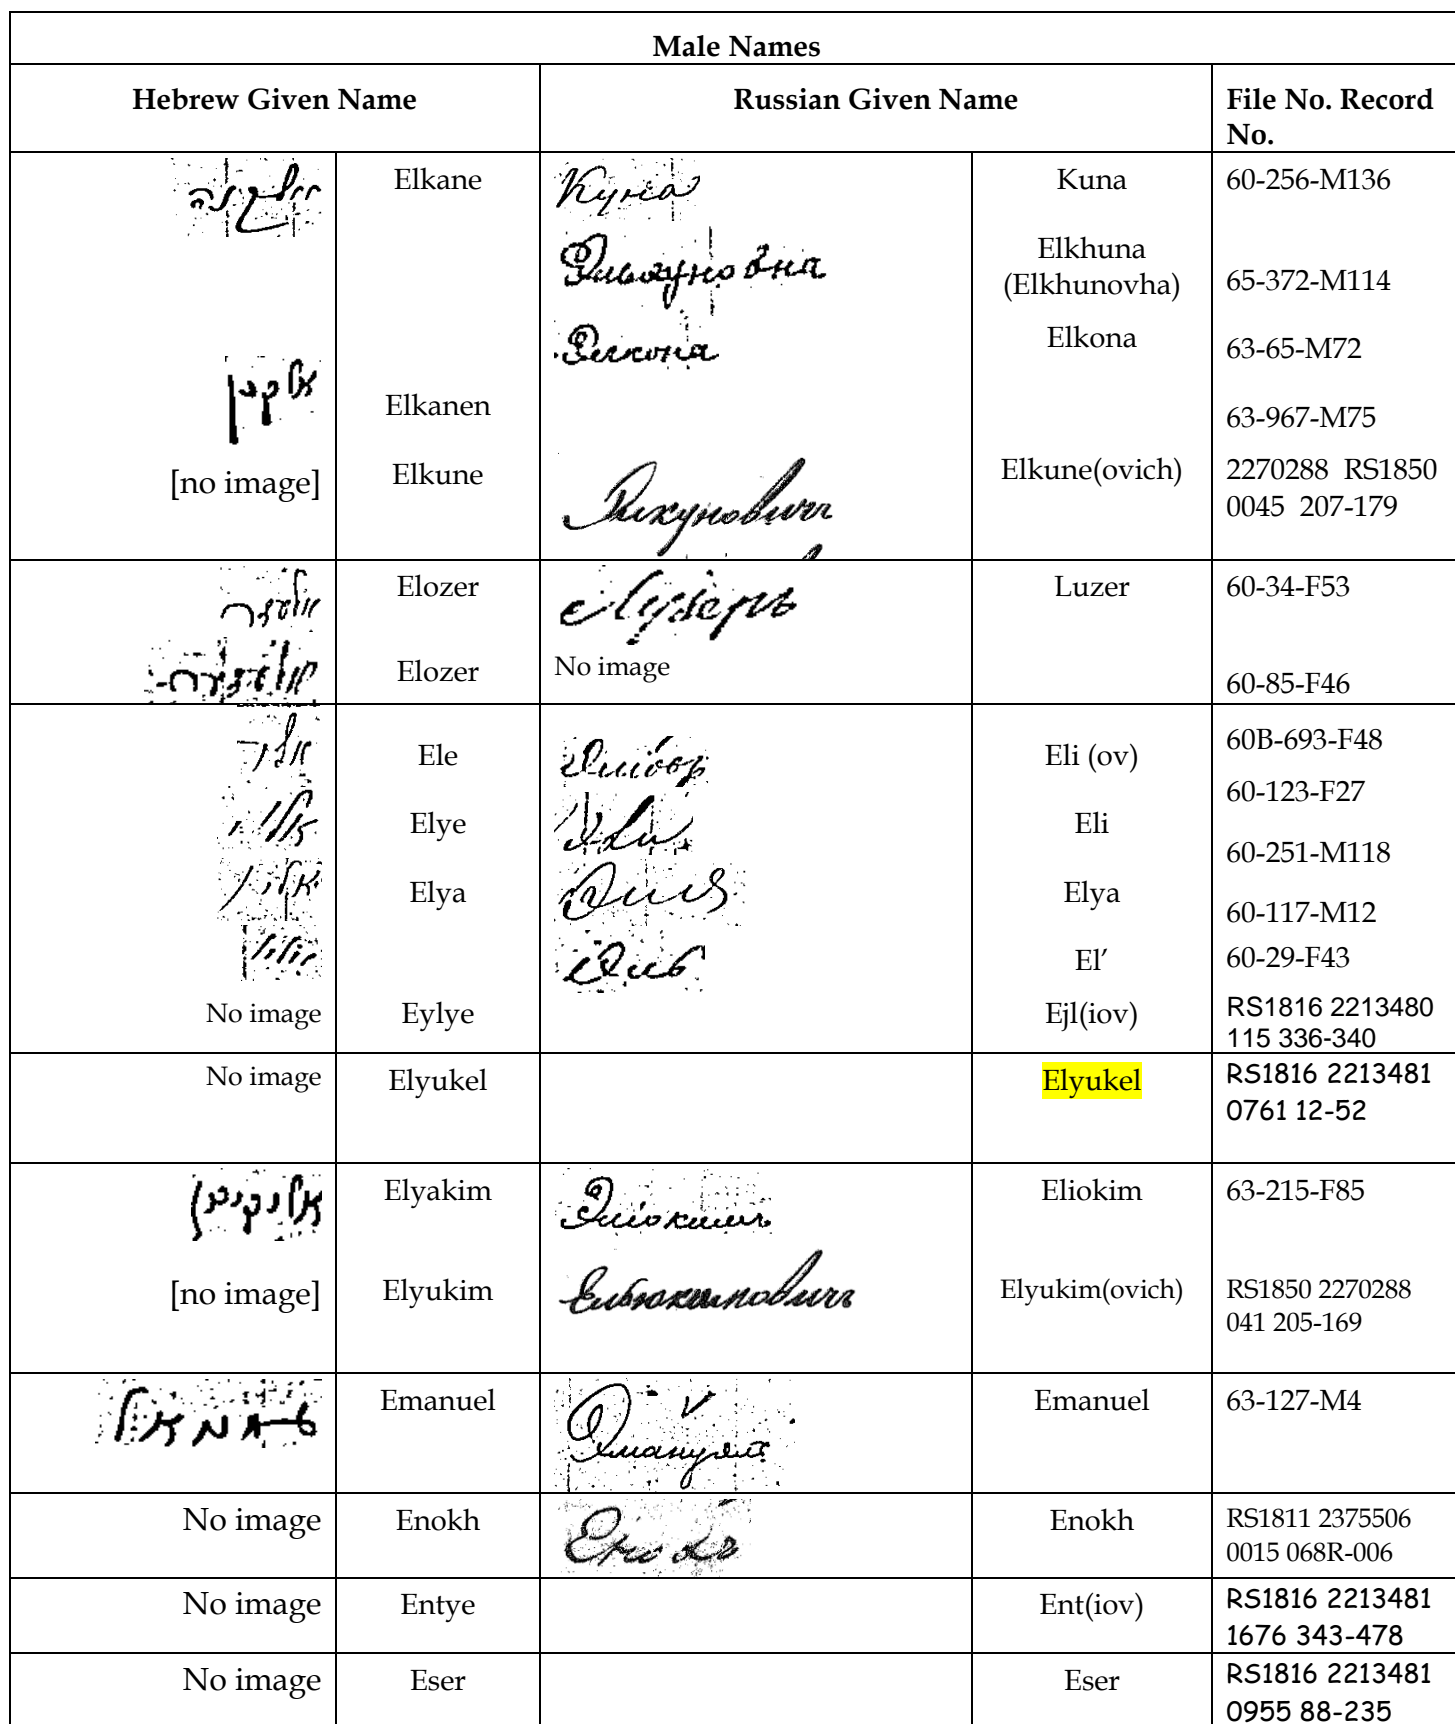 Male Names
Hebrew Given Name Russian Given Name File No. Record
No.
Elkane Куна Kuna 60-256-M136
Elkhuna
(Elkhunovha) 65-372-M114
Элкона Elkona 63-65-M72
אלקנן Elkanen 63-967-M75
[no image] Elkune Элкуновичъ Elkune(ovich) 2270288 RS1850
0045 207-179
Elozer Лузеръ Luzer 60-34-F53
Elozer No image 60-85-F46
Ele Eli (ov) 60B-693-F48
60-123-F27
Elye Эли Eli
60-251-M118
Elya Эля Elya
60-117-M12
Эль El’ 60-29-F43
No image Eylye Ejl(iov) RS1816 2213480
115 336-340
No image Elyukel Elyukel RS1816 2213481
0761 12-52
Elyakim Эліокимъ Eliokim 63-215-F85
[no image] Elyukim Ельюкимовичъ Elyukim(ovich) RS1850 2270288
041 205-169
Emanuel Эмануель Emanuel 63-127-M4
No image Enokh Енохъ Enokh RS1811 2375506
0015 068R-006
No image Entye Ent(iov) RS1816 2213481
1676 343-478
No image Eser Eser RS1816 2213481
0955 88-235